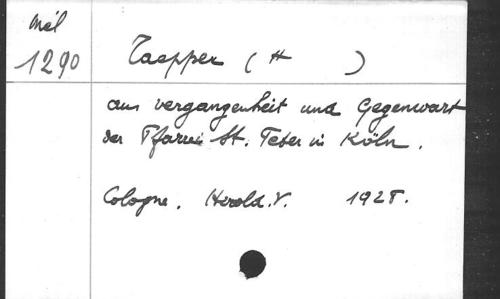 Mél
1290
Taepper ( H )
aus vergangenheit und Gegenwart
der Pfarrei St. Peter in Köln.
Cologne. Herold.V. 1928.